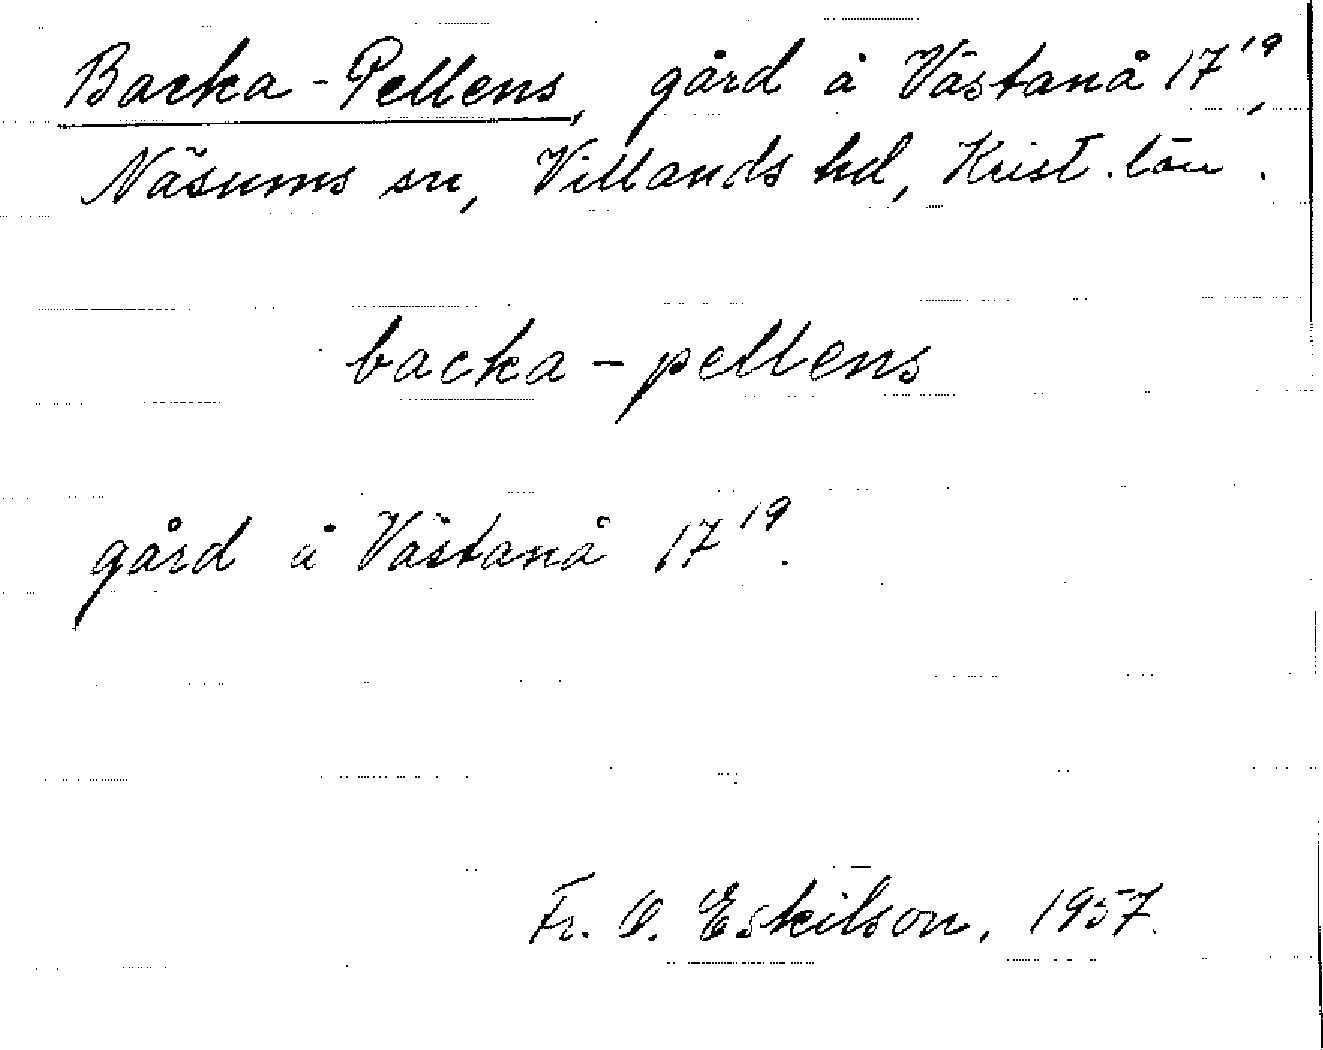 Backa-Pellens, gård å Västanå 17¹⁹,
Näsums sn, Villands hd, Krist. län.
backa-pellens
gård å Västanå 17¹⁹.
Fr. O. Eskilson, 1957.